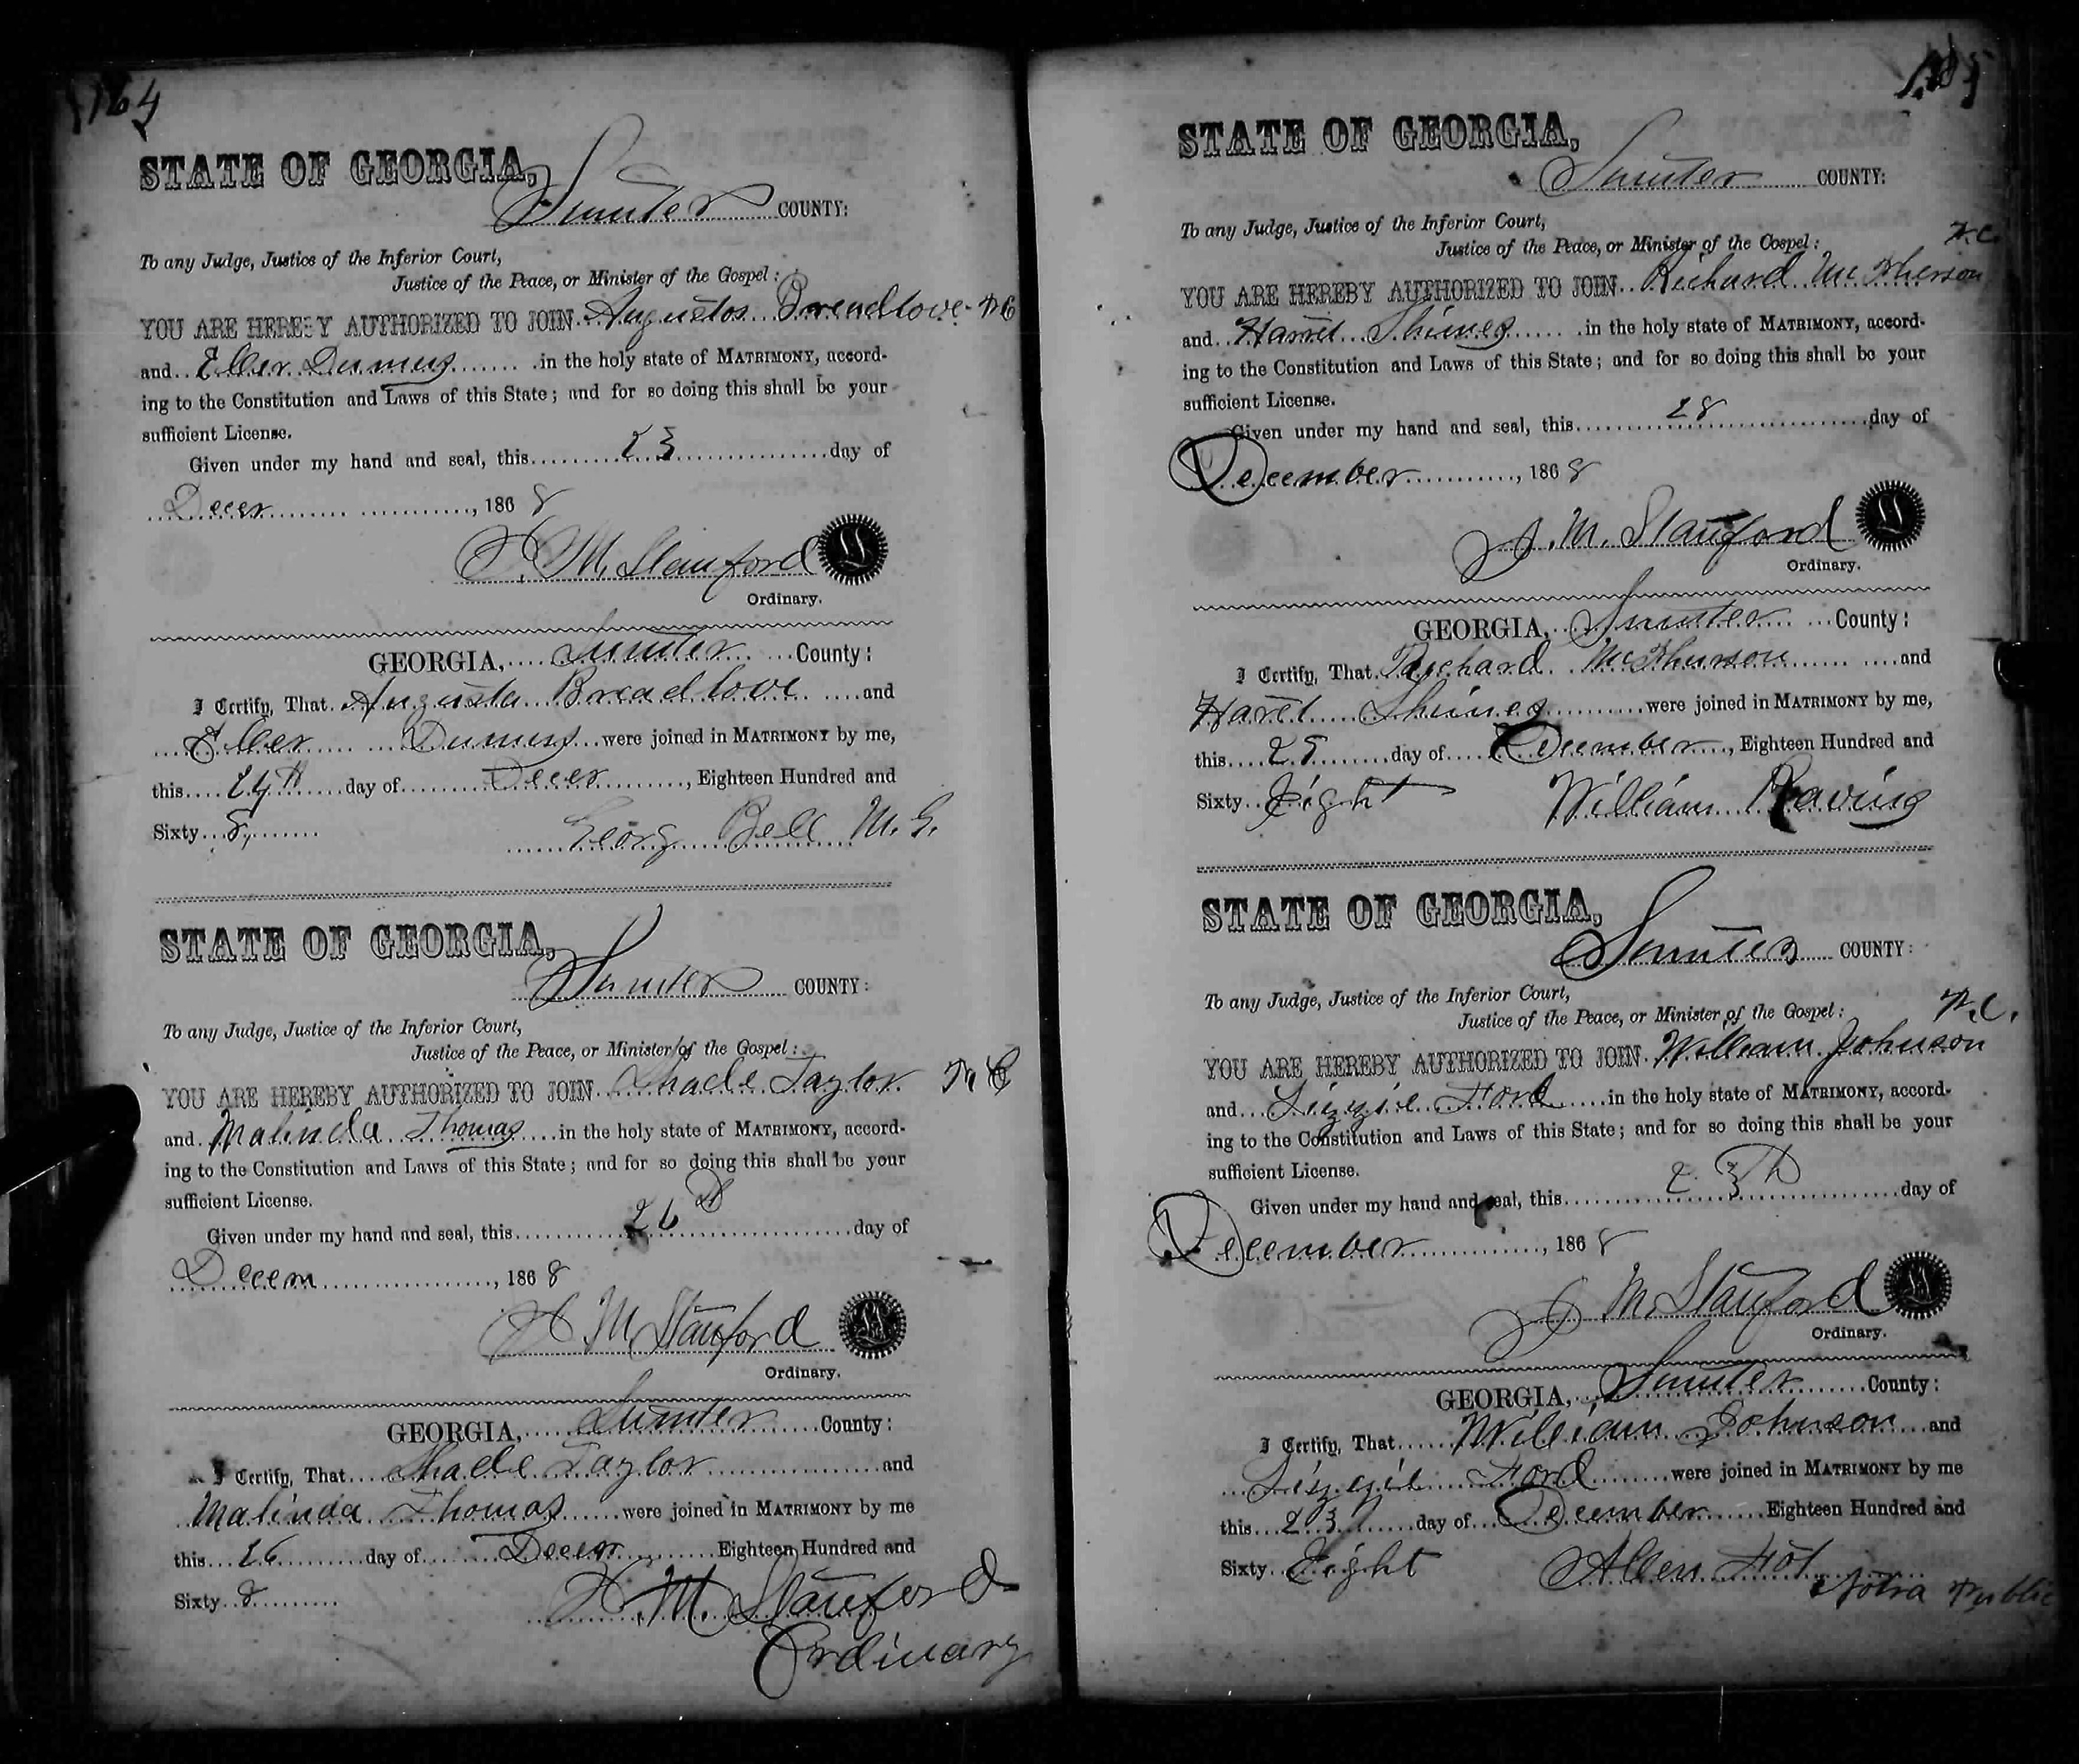 164
STATE OF GEORGIA,
Sumter COUNTY:
To any Judge, Justice of the Inferior Court,
Justice of the Peace, or Minister of the Gospel:
YOU ARE HEREBY AUTHORIZED TO JOIN Augustos Breadlove F C
and Eller Dumus in the holy state of MATRIMONY, accord-
ing to the Constitution and Laws of this State; and for so doing this shall be your
sufficient License.
Given under my hand and seal, this 23 day of
Decer, 1868
M. Stanford
Ordinary.
GEORGIA, Sumter County:
I Certify, That Augusta Breadlove and
Eller Dumus were joined in MATRIMONY by me,
this 24th day of Decer, Eighteen Hundred and
Sixty 8,
Georg Bell M. G.
STATE OF GEORGIA,
Sumter COUNTY:
To any Judge, Justice of the Inferior Court,
Justice of the Peace, or Minister of the Gospel:
YOU ARE HEREBY AUTHORIZED TO JOIN Shade Taylor F C
and Malinda Thomas in the holy state of MATRIMONY, accord-
ing to the Constitution and Laws of this State; and for so doing this shall be your
sufficient License.
Given under my hand and seal, this 26th day of
Decem, 1868
M Stanford
Ordinary.
GEORGIA, Sumter County:
I Certify, That Shade Taylor and
Malinda Thomas were joined in MATRIMONY by me
this 26 day of Decer Eighteen Hundred and
Sixty 8
M. Stanford
Ordinary
STATE OF GEORGIA,
Sumter COUNTY:
To any Judge, Justice of the Inferior Court,
Justice of the Peace, or Minister of the Gospel:
F.C.
YOU ARE HEREBY AUTHORIZED TO JOIN Richard McPherson
and Harret Shines in the holy state of MATRIMONY, accord-
ing to the Constitution and Laws of this State; and for so doing this shall be your
sufficient License.
Given under my hand and seal, this 28 day of
December, 1868
M. Stanford
Ordinary.
GEORGIA, Sumter County:
I Certify, That Richard McPhurson and
Haret Shines were joined in MATRIMONY by me,
this 28 day of December, Eighteen Hundred and
Sixty Eight William Raving
STATE OF GEORGIA,
Sumter COUNTY:
To any Judge, Justice of the Inferior Court,
Justice of the Peace, or Minister of the Gospel:
F.C.
YOU ARE HEREBY AUTHORIZED TO JOIN William Johnson
and Lizzie Ford in the holy state of MATRIMONY, accord-
ing to the Constitution and Laws of this State; and for so doing this shall be your
sufficient License.
Given under my hand and seal, this 23th day of
December, 1868
M. Stanford
Ordinary.
GEORGIA, Sumter County:
I Certify, That William Johnson and
Lizzie Ford were joined in MATRIMONY by me
this 23 day of December Eighteen Hundred and
Sixty Eight Allen
Notra Public